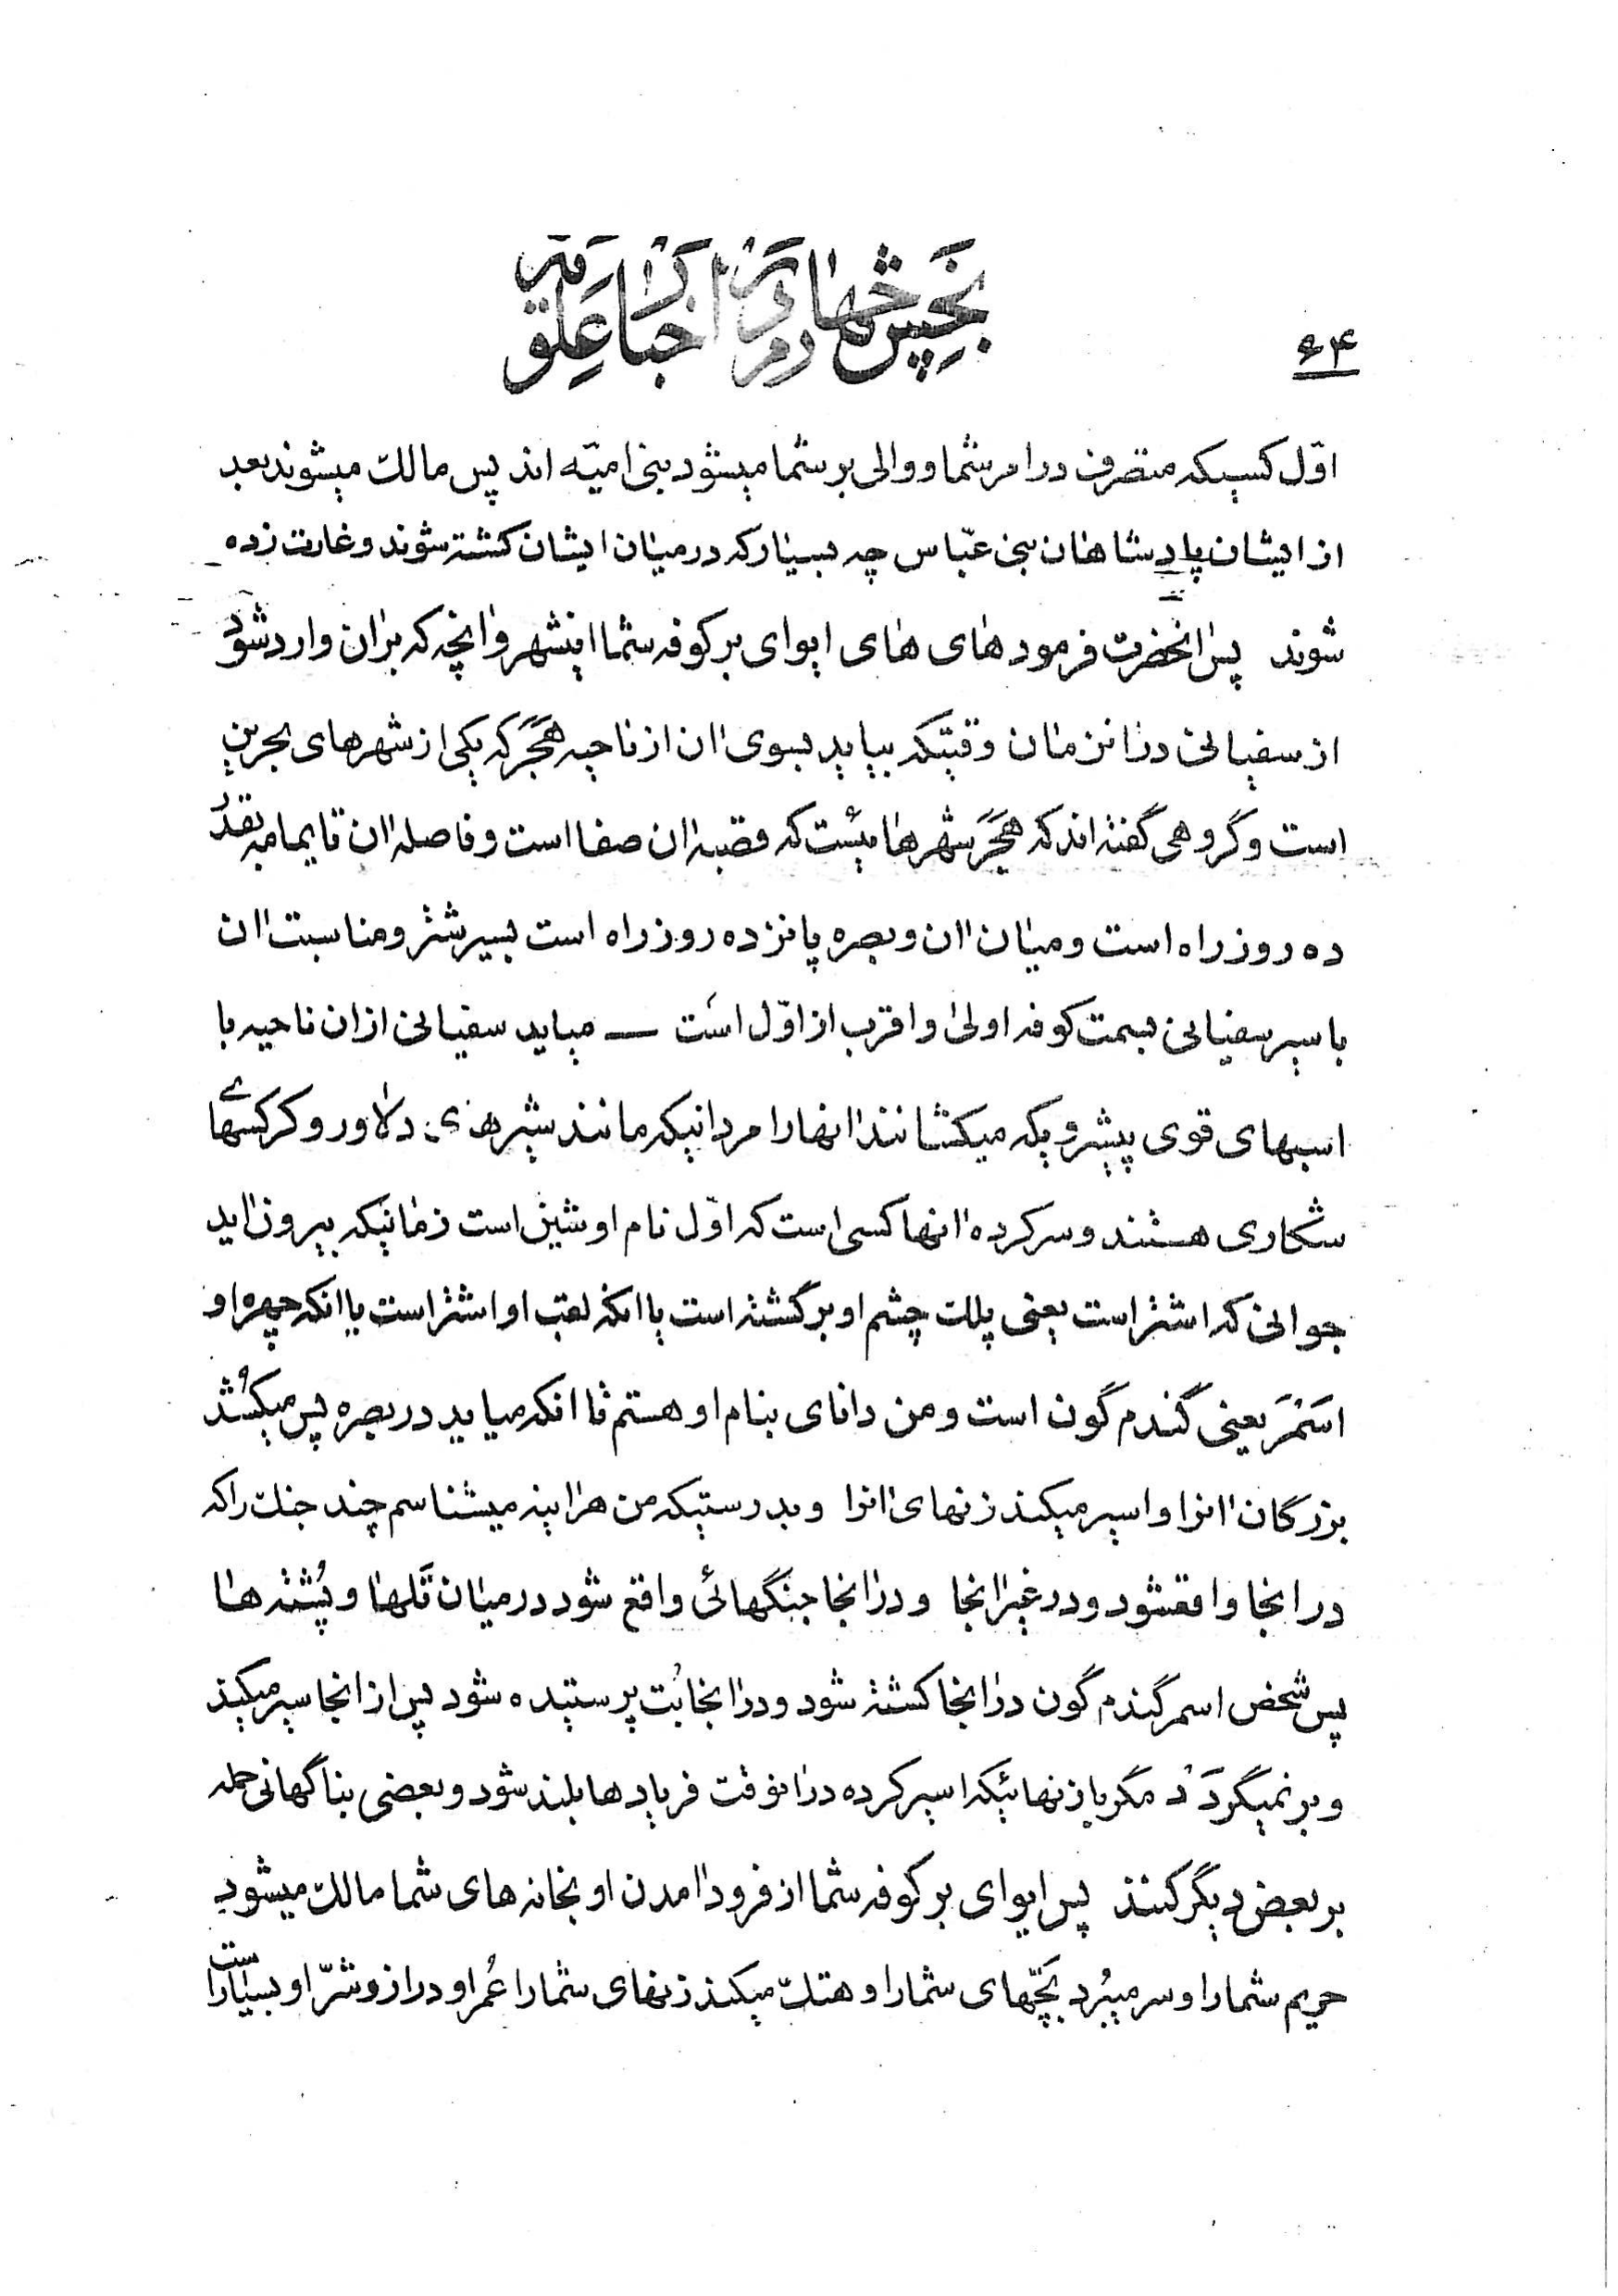 بخش چهارم در اخبار علویه
۶۴
اوّل کسیکه متصرف در امر شما و والی بر شما میشود بنی امیّه اند پس مالک میشوند بعد
از ایشان پادشاهان بنی عبّاس چه بسیار که در میان ایشان کشته شوند و غارت زده
شوند پس انحضرت فرمود های های ایوای بر کوفه شما اینشهر و انچه که بران وارد شود
از سفیانی در انزمان وقتیکه بیاید بسوی ان از ناحیه هَجَر که یکی از شهرهای بحرین
است و گروهی گفته اند که هَجَر شهرهائیست که قصبه ان صفا است و فاصله ان تا یمامه بقدر
ده روز راه است و میان ان و بصره پانزده روز راه است بسیر شتر و مناسبت ان
با سیر سفیانی بسمت کوفه اولی و اقرب از اوّل است ــ میاید سفیانی از ان ناحیه با
اسبهای قوی پیشرویکه میکشانند انها را مردانیکه مانند شیرهای دلاور و کرکسهای
شکاری هستند و سرکرده انها کسی است که اوّل نام او شین است زمانیکه بیرون اید
جوانی که اشتر است یعنی پلک چشم او برگشته است یا انکه لقب او اشتر است یا انکه چهره او
اسَمَر یعنی گندم گون است و من دانای بنام او هستم تا انکه میاید در بصره پس میکُشد
بزرگان انرا و اسیر میکند زنهای انرا و بدرستیکه من هراینه میشناسم چند جنک را که
در انجا واقعشود و در غیر انجا و در انجا جنگهائی واقع شود در میان تَلها و پُشته ها
پس شخص اسمر گندم گون در انجا کشته شود و در انجا بُت پرستیده شود پس از انجا سیر میکند
و بر نمیگردَد مگر با زنهائیکه اسیر کرده در انوقت فریادها بلند شود و بعضی بناگهانی حمله
بر بعض دیگر کنند پس ایوای بر کوفه شما از فرود امدن او بخانه های شما مالک میشود
حریم شما را و سر میبُرد بَچّهای شما را و هتک میکند زنهای شما را عُمر او دراز و شرّ او بسیار است